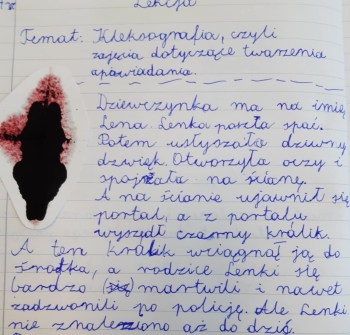 Lekcja
Temat: Kleksografia, czyli
zajęcia dotyczące tworzenia
opowiadania.
Dziewczynka ma na imię
Lena. Lenka poszła spać.
Potem usłyszała dziwny
dzwięk. Otworzyła oczy i
spojrzała na ścianę.
A na ścianie ujawnił się
portal, a z portalu
wyszedł czarny królik.
A ten królik wciągnął ją do
środka, a rodzice Lenki się
bardzo (się) martwili i nawet
zadzwonili po policję. Ale Lenki
nie znaleziono aż do dziś.